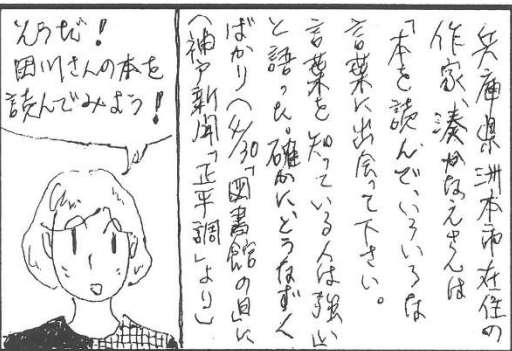 兵庫県洲本市在住の
作家、湊かなえさんは
「本を読んで、いろいろな
言葉に出会って下さい。
言葉を知っている人は強い」
と語った。確かに、とうなずく
ばかり(4/30「図書館の日に
(神戸新聞「正平調」より)
そうだ!
田川さんの本を
読んでみよう!